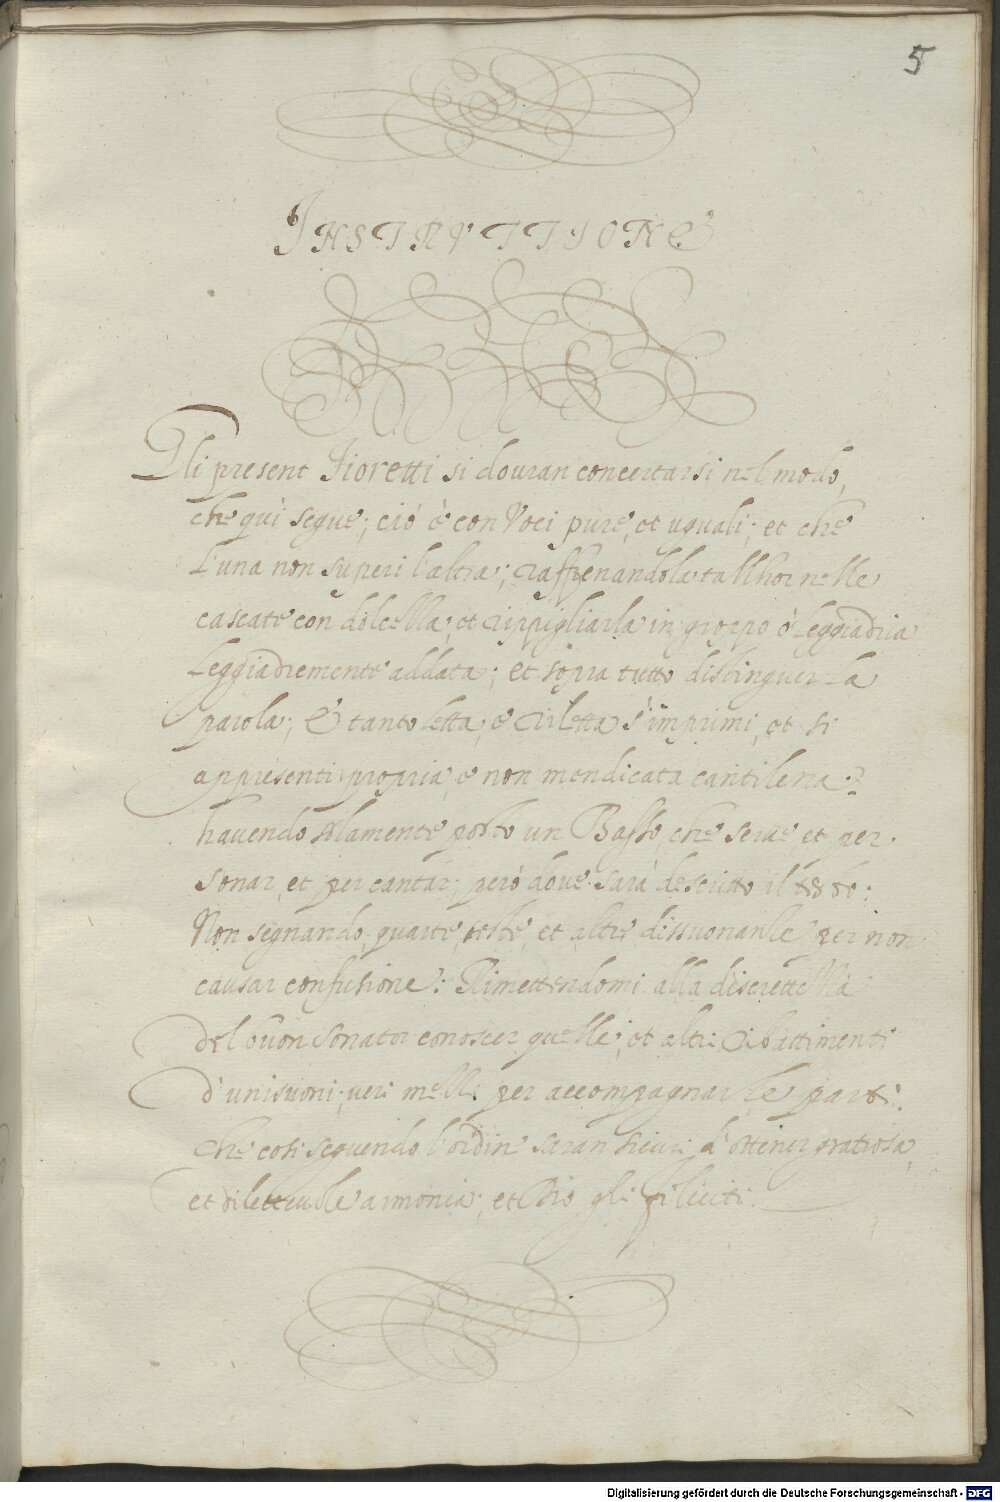 5
INSTRVTTIONE
Gli present Fioretti si douran concertarsi nel modo,
che quì segue; ciò è con Voci pure, et uguali; et che
l'una non superi l'altra; raffrenandola tallhor nelle
cascate con dolcezza, et rippigliarla in groppo ò leggiadria
leggiadremente addata; et sopra tutto distinguer la
parola; è tanto letta, e riletta s'imprimi, et si
appresenti propria, e non mendicata cantilena:
havendo solamente posto un Basso, che serue, et per
sonar, et per cantar; però doue sarà descritto il testo:
Non segnando, quarte, seste, et altre dissuonanze per non
causar confusione: Rimettendomi alla discrettezza
del buon sonator conoscer quelle; et altri ribattimenti
d'unisuoni; ueri mezzi per accompagnar le parti:
che così seguendo l'ordine saran sicuri d'ottener gratiosa,
et diletteuole armonia; et Dio gli feliciti.
Digitalisierung gefördert durch die Deutsche Forschungsgemeinschaft - DFG